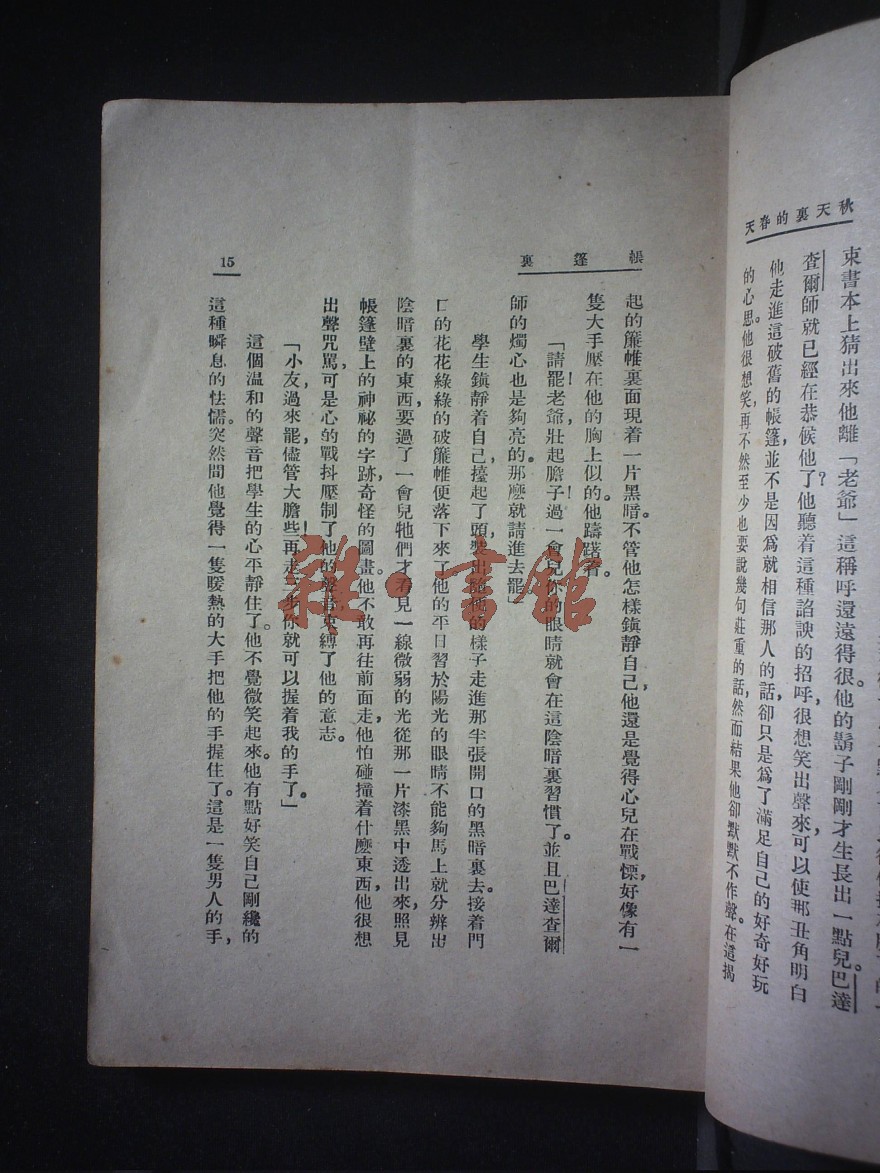 秋天裏的春天
束書本上猜出來他離「老爺」這稱呼還遠得很。他的鬍子剛剛才生長出一點兒。巴達
查爾師就已經在恭候他了？他聽着這種諂諛的招呼，很想笑出聲來，可以使那丑角明白
他走進這破舊的帳篷，並不是因爲就相信那人的話，卻只是爲了滿足自己的好奇好玩
的心思。他很想笑，再不然至少也要說幾句莊重的話，然而結果他卻默默不作聲。在這揭
帳篷裏
15
起的簾帷裏面現着一片黑暗。不管他怎樣鎮靜自己，他還是覺得心兒在戰慄，好像有一
隻大手壓在他的胸上似的。他躊躇着。
「請罷，老爺！壯起膽子！過一會兒你的眼睛就會在這陰暗裏習慣了。並且巴達查爾
師的燭心也是夠亮的。那麼就請進去罷！」
學生鎮靜着自己，擡起了頭，裝出隨便的樣子走進那半張開口的黑暗裏去。接着門
口的花花綠綠的破簾帷便落下來了。他的平日習於陽光的眼睛不能夠馬上就分辨出
陰暗裏的東西，要過了一會兒牠們才看見一線微弱的光從那一片漆黑中透出來，照見
帳篷壁上的神祕的字跡，奇怪的圖畫。他不敢再往前面走，他怕碰撞着什麼東西，他很想
出聲咒罵，可是心的戰抖壓制了他的聲音，束縛了他的意志。
「小友，過來罷，儘管大膽些！再走三步你就可以握着我的手了。」
這個温和的聲音把學生的心平靜住了。他不覺微笑起來。他有點好笑自己剛纔的
這種瞬息的怯懦。突然間他覺得一隻暖熱的大手把他的手握住了。這是一隻男人的手，
雜·書館